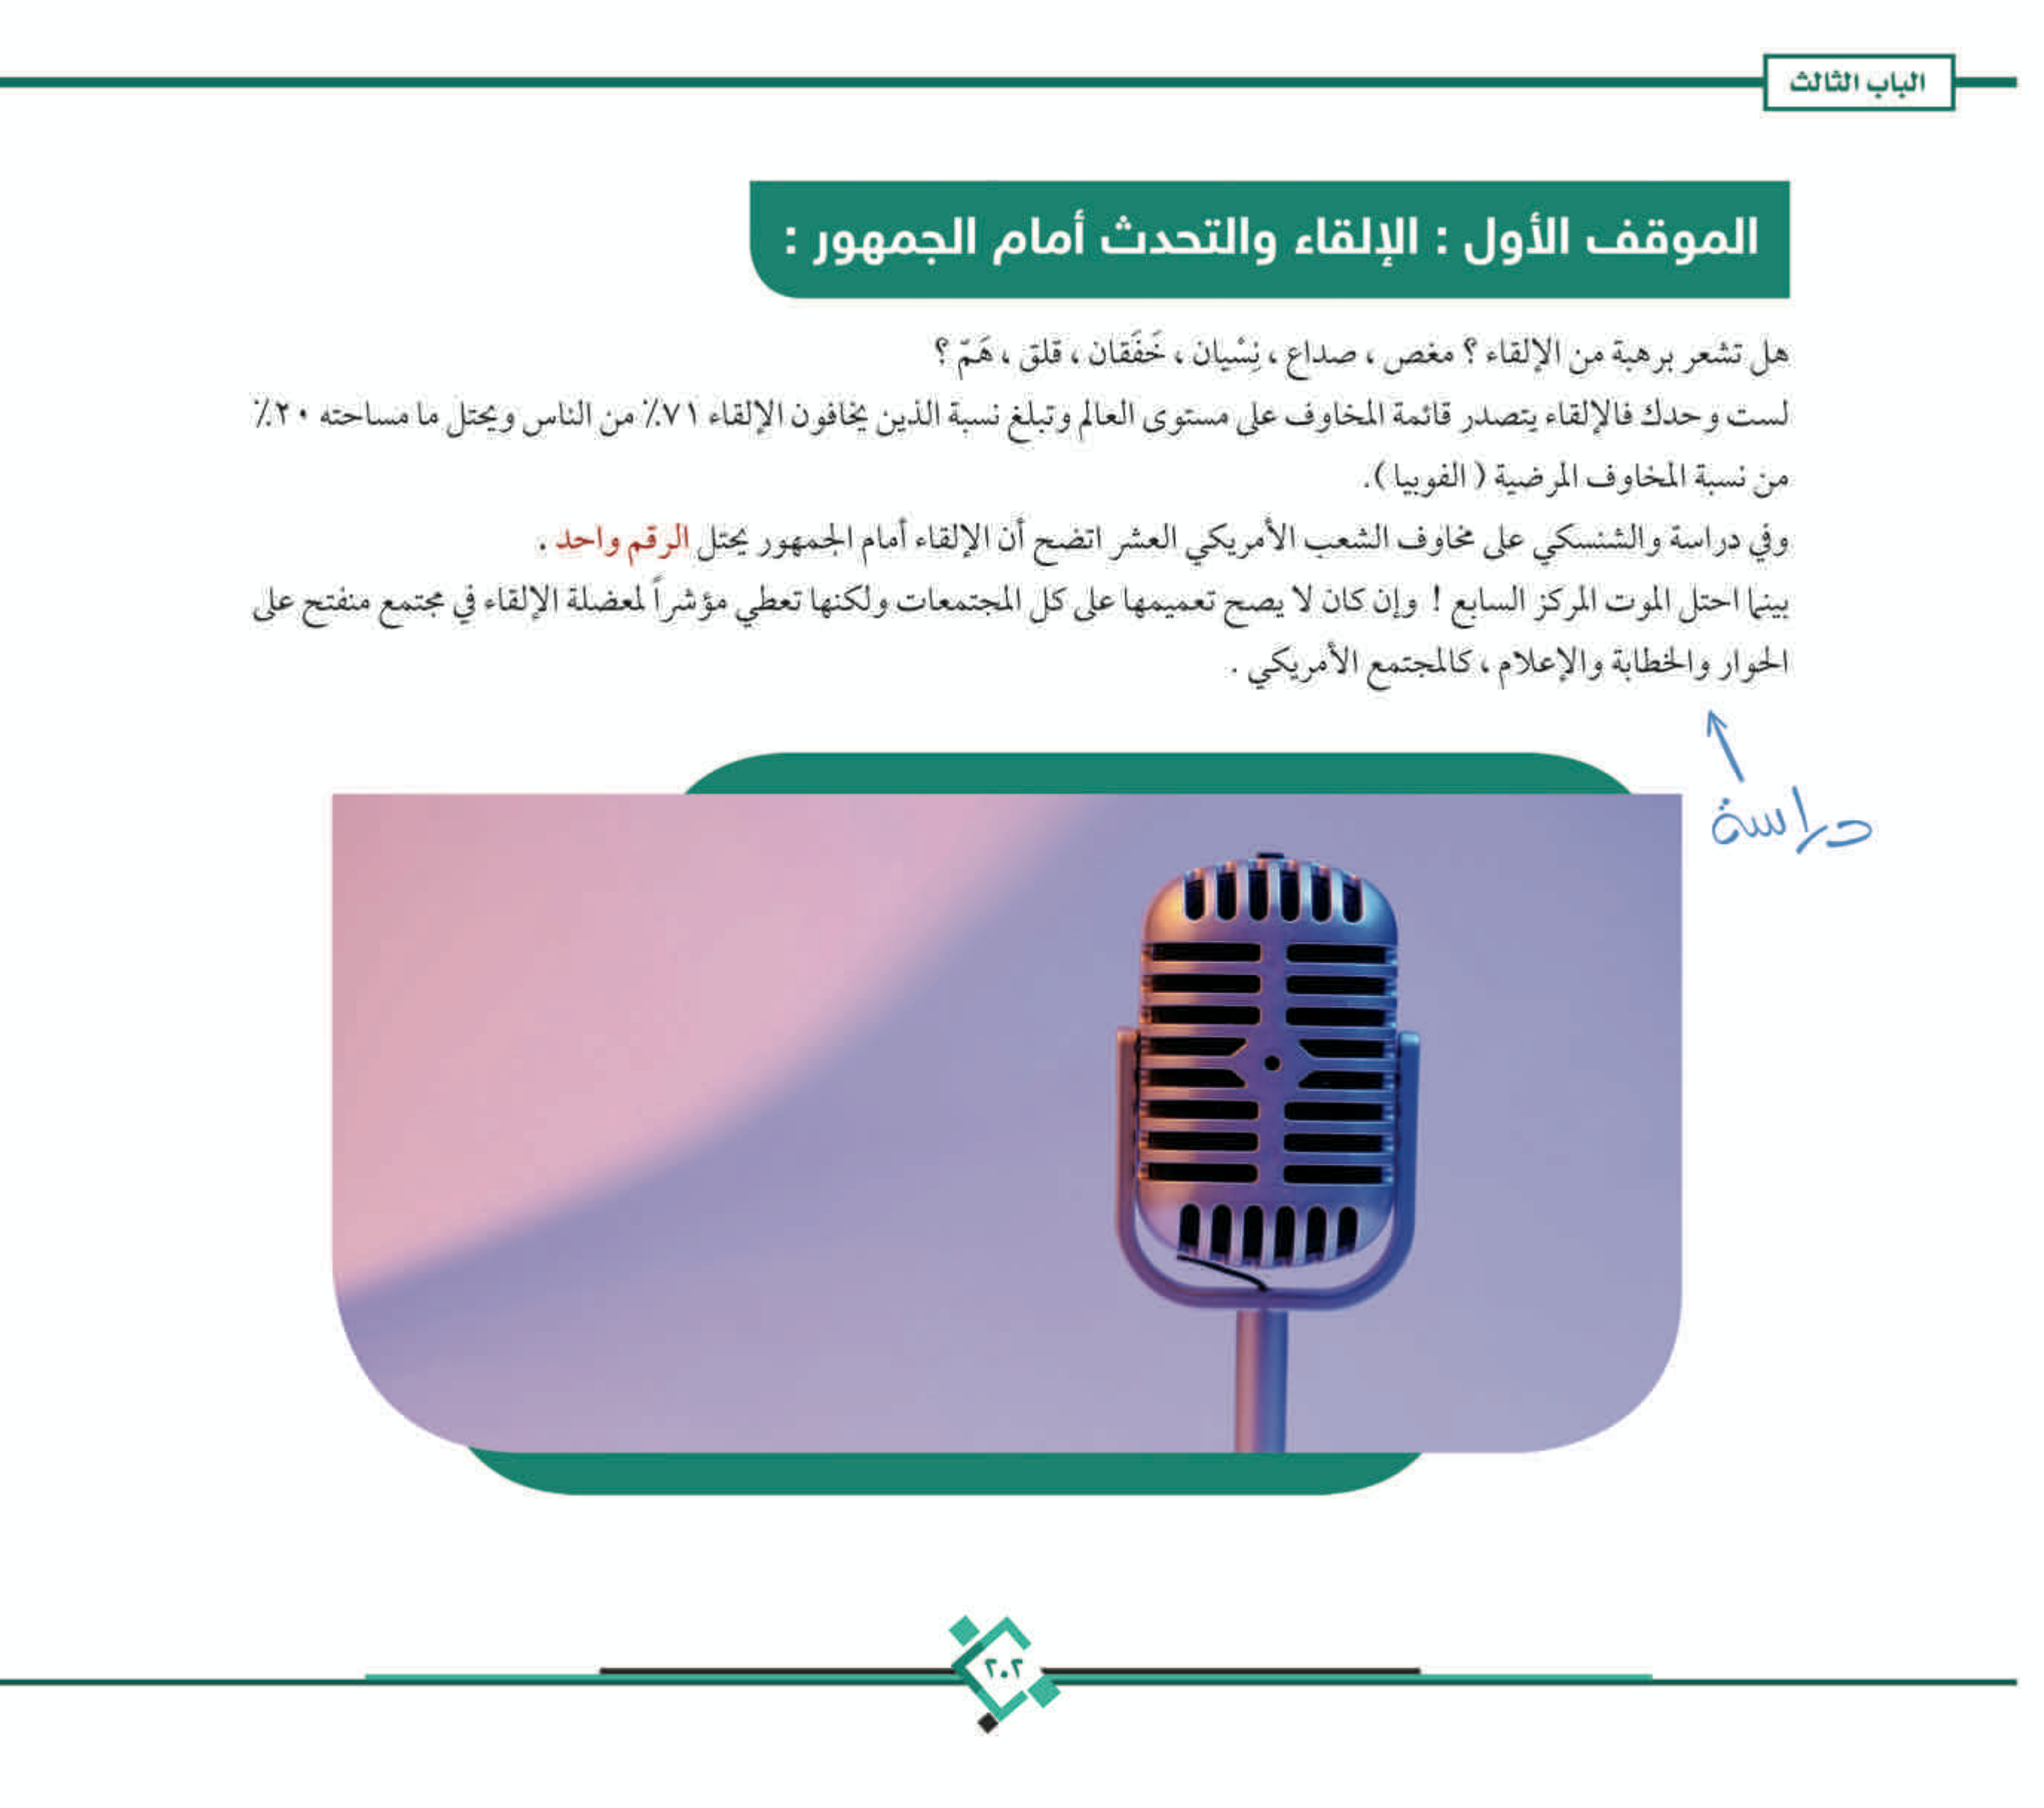 الباب الثالث
الموقف الأول : الإلقاء والتحدث أمام الجمهور :
هل تشعر برهبة من الإلقاء ؟ مغص ، صداع ، نِسْيان ، خَفَقان ، قلق ، هَمّ ؟
لست وحدك فالإلقاء يتصدر قائمة المخاوف على مستوى العالم وتبلغ نسبة الذين يخافون الإلقاء ٧١٪ من الناس ويحتل ما مساحته ٢٠٪
من نسبة المخاوف المرضية ( الفوبيا ).
وفي دراسة والشنسكي على مخاوف الشعب الأمريكي العشر اتضح أن الإلقاء أمام الجمهور يحتل الرقم واحد .
بينما احتل الموت المركز السابع ! وإن كان لا يصح تعميمها على كل المجتمعات ولكنها تعطي مؤشراً لمعضلة الإلقاء في مجتمع منفتح على
الحوار والخطابة والإعلام ، كالمجتمع الأمريكي .
دراسة
٢٠٢